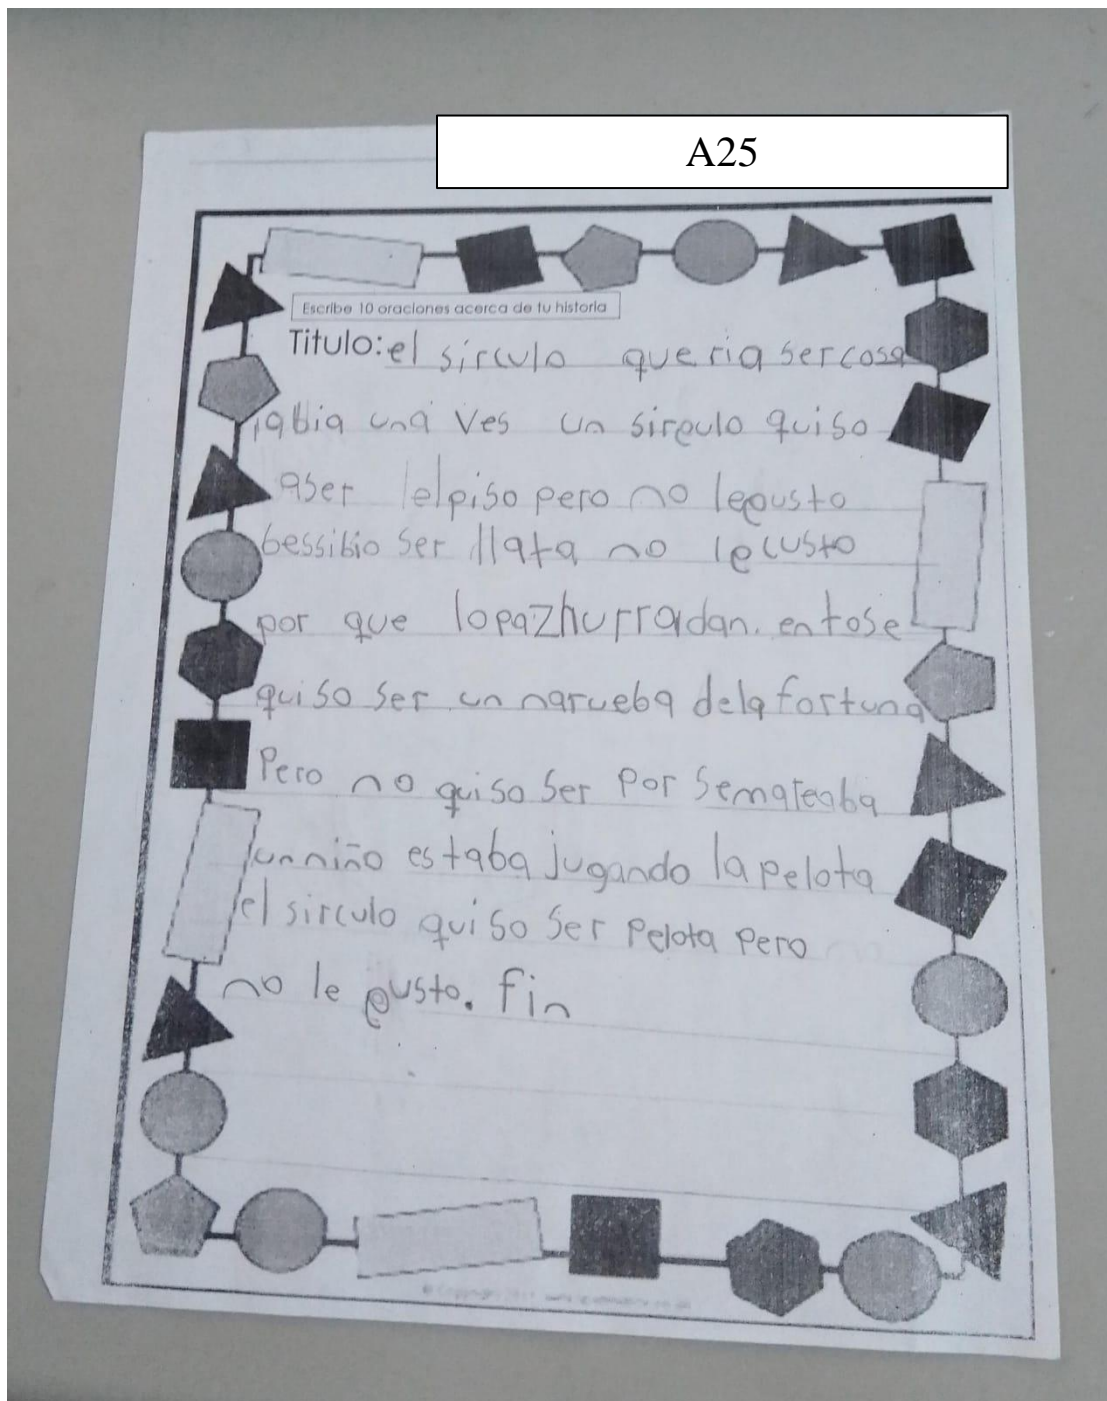 A25
Escribe 10 oraciones acerca de tu historia
Titulo: el sirculo queria ser cosa
abia una ves un sirculo quiso
aser lelpiso pero no legusto
bessibio ser llata no lecusto
por que lopazhurradan. entose
quiso ser un narueba dela fortuna
Pero no quiso ser por semateaba
un niño estaba jugando la pelota
el sirculo quiso ser pelota pero
no le gusto. fin